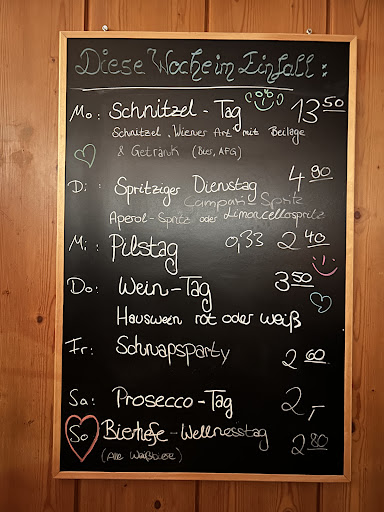 Diese Woche im Einfall :
Mo: Schnitzel - Tag 13 50
Schnitzel "Wiener Art" mit Beilage
& Getränk (Bier, AFG)
Di: Spritziger Dienstag 4 80
Campari Spritz
Aperol-Spritz oder Limoncellospritz
Mi: Pilstag 0,33 2 40
Do: Wein-Tag 3 50
Hauswein rot oder weiß
Fr: Schnapsparty 2 60
Sa: Prosecco-Tag 2,-
So Bierhefe-Wellnesstag 2 80
(Alle Weißbiere)